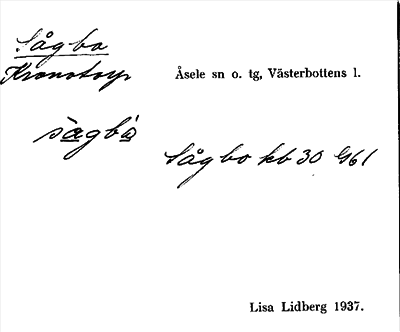 Sågbo
Kronotorp Åsele sn o. tg, Västerbottens l.
Sågbo kb 30 G61
Lisa Lidberg 1937.